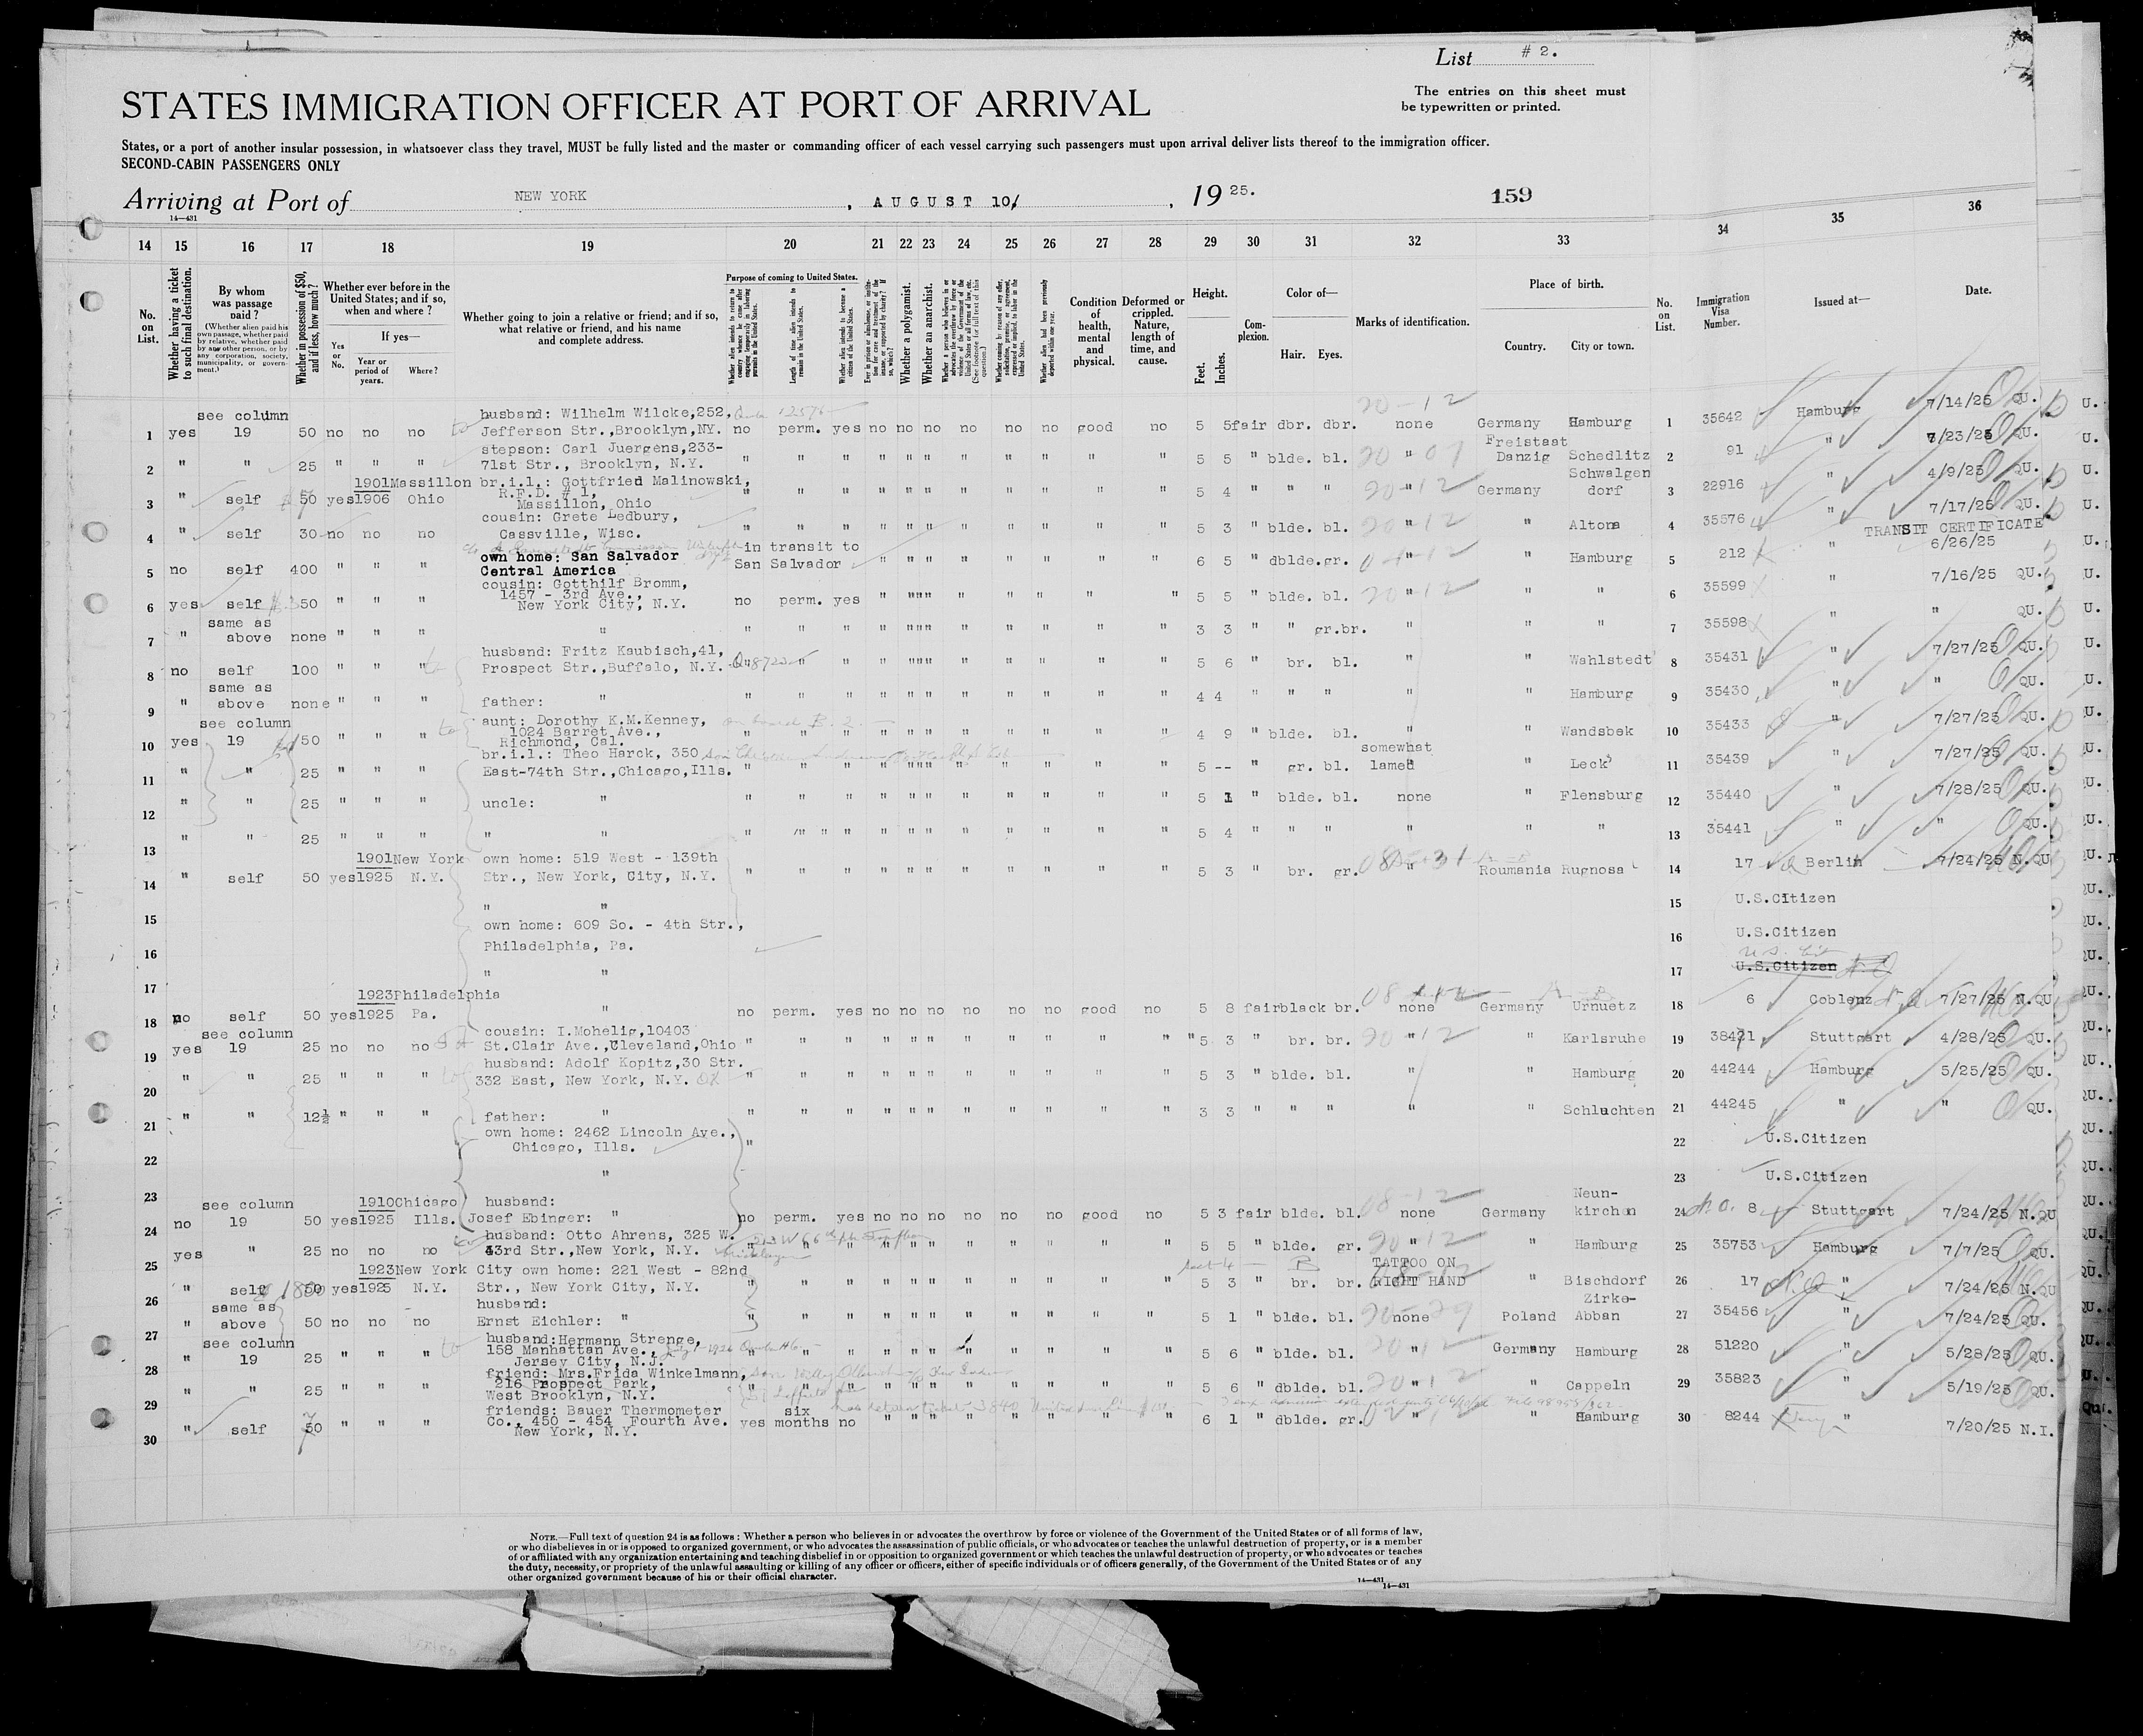 List # 2.
STATES IMMIGRATION OFFICER AT PORT OF ARRIVAL
The entries on this sheet must
be typewritten or printed.
States, or a port of another insular possession, in whatsoever class they travel, MUST be fully listed and the master or commanding officer of each vessel carrying such passengers must upon arrival deliver lists thereof to the immigration officer.
SECOND-CABIN PASSENGERS ONLY
Arriving at Port of NEW YORK, AUGUST 10, 1925. 159
14—431
14 15 16 17 18 19 20 21 22 23 24 25 26 27 28 29 30 31 32 33 34 35 36
No. on List.
Whether having a ticket to such final destination.
By whom was passage paid?
(Whether alien paid his own passage, whether paid by relative, whether paid by any other person, or by any corporation, society, municipality, or government.)
Whether in possession of $50, and if less, how much?
Whether ever before in the United States; and if so, when and where?
If yes—
Yes or No.
Year or period of years.
Where?
Whether going to join a relative or friend; and if so, what relative or friend, and his name and complete address.
Purpose of coming to United States.
Length of time alien intends to remain in the United States.
Whether alien intends to become a citizen of the United States.
Whether a polygamist.
Whether an anarchist.
Condition of health, mental and physical.
Deformed or crippled. Nature, length of time, and cause.
Height.
Feet. Inches.
Complexion.
Color of—
Hair. Eyes.
Marks of identification.
Place of birth.
Country. City or town.
No. on List.
Immigration Visa Number.
Issued at—
Date.
1 yes see column 19 50 no no no husband: Wilhelm Wilcke,252, Jefferson Str.,Brooklyn,NY. no perm. yes no no no no no no good no 5 5 fair dbr. dbr. none Germany Hamburg 1 35642 Hamburg 7/14/25 QU.
2 " " 25 " " " stepson: Carl Juergens,233- 71st Str., Brooklyn, N.Y. " " " " " " " " " " " 5 5 " blde. bl. " Freistaat Danzig Schedlitz 2 91 " 7/23/25 QU.
3 " self 50 yes 1901 1906 Massillon Ohio br.i.l.: Gottfried Malinowski, R.F.D. # 1, Massillon, Ohio " " " " " " " " " " " 5 4 " " " " Germany Schwalgendorf 3 22916 " 4/9/25 QU.
4 " self 30 no no no cousin: Grete Ledbury, Cassville, Wisc. " " " " " " " " " " " 5 3 " blde. bl. " " Altona 4 35576 " 7/17/25 QU.
5 no self 400 " " " own home: San Salvador Central America in transit to San Salvador " " " " " " " " 6 5 " dblde. gr. " Hamburg 5 212 " TRANSIT CERTIFICATE 6/26/25
6 yes self 50 " " " cousin: Gotthilf Bromm, 1457 - 3rd Ave., New York City, N.Y. no perm. yes " " " " " " " " 5 5 " blde. bl. " " " 6 35599 " 7/16/25 QU.
7 " same as above none " " " " " " " " " " " " " " " 3 3 " " gr.br. " " " 7 35598 " " QU.
8 no self 100 " " " husband: Fritz Kaubisch,41, Prospect Str.,Buffalo, N.Y. " " " " " " " " " " " 5 6 " br. bl. " " Wahlstedt 8 35431 " 7/27/25 QU.
9 " same as above none " " " father: " " " " " " " " " " " " 4 4 " " " " " Hamburg 9 35430 " " QU.
10 yes see column 19 50 " " " aunt: Dorothy K.M.Kenney, 1024 Barret Ave., Richmond, Cal. " " " " " " " " " " " 4 9 " blde. bl. " " Wandsbek 10 35433 " 7/27/25 QU.
11 " " 25 " " " br.i.l.: Theo Harck, 350 East-74th Str.,Chicago,Ills. " " " " " " " " " " " 5 -- " gr. bl. somewhat lamed " Leck 11 35439 " 7/27/25 QU.
12 " " 25 " " " uncle: " " " " " " " " " " " " 5 1 " blde. bl. none " Flensburg 12 35440 " 7/28/25 QU.
13 " " 25 " " " " " " " " " " " " " " " " " 5 4 " " " " " " 13 35441 " " QU.
14 " self 50 yes 1901 1925 New York N.Y. own home: 519 West - 139th Str., New York, City, N.Y. " " " " " " " " " " " 5 3 " br. gr. " Roumania Rugnosa 14 17 Berlin 7/24/25 N.QU
15 " " 15 U.S.Citizen
16 own home: 609 So. - 4th Str., Philadelphia, Pa. 16 U.S.Citizen
17 " " 17 U.S.Citizen
18 no self 50 yes 1923 1925 Philadelphia Pa. " no perm. yes no no no no no no good no 5 8 fair black br. none Germany Urnuetz 18 6 Coblenz 7/27/25 N.QU
19 yes see column 19 25 no no no cousin: I.Mohelig,10403 St.Clair Ave.,Cleveland,Ohio " " " " " " " " " " " 5 3 " br. br. " " Karlsruhe 19 Stuttgart 4/28/25 QU.
20 " " 25 " " " husband: Adolf Kopitz,30 Str. 332 East, New York, N.Y. " " " " " " " " " " " 5 3 " blde. bl. " " Hamburg 20 44244 Hamburg 5/25/25 QU.
21 " " 12½ " " " father: " " " " " " " " " " " " 3 3 " " " " " Schluchten 21 44245 " " QU.
22 own home: 2462 Lincoln Ave., Chicago, Ills. " 22 U.S.Citizen
23 " 23 U.S.Citizen
24 no see column 19 50 yes 1910 1925 Chicago Ills. husband: Josef Ebinger: " no perm. yes no no no no no no good no 5 3 fair blde. bl. none Germany Neunkirchen 24 8 Stuttgart 7/24/25 N.QU
25 yes " 25 no no no husband: Otto Ahrens, 325 W. 43rd Str.,New York, N.Y. " " " " " " " " " " " 5 5 " blde. gr. " " Hamburg 25 35753 Hamburg 7/7/25 QU.
26 " self 50 yes 1923 1925 New York City N.Y. own home: 221 West - 82nd Str., New York City, N.Y. " " " " " " " " " " " 5 3 " br. br. TATTOO ON RIGHT HAND " Bischdorf 26 17 " 7/24/25 N.QU
27 " same as above 50 no no no husband: Ernst Eichler: " " " " " " " " " " " " 5 1 " blde. bl. none Poland Zirke-Abban 27 35456 " 7/24/25 QU.
28 " see column 19 25 " " " husband:Hermann Strenge, 158 Manhattan Ave., Jersey City, N.J. " " " " " " " " " " " 5 6 " blde. bl. " Germany Hamburg 28 51220 " 5/28/25 QU.
29 " " 25 " " " friend: Mrs.Frida Winkelmann, 216 Prospect Park, West Brooklyn, N.Y. " " " " " " " " " " " 5 6 " dblde. bl. " " Cappeln 29 35823 " 5/19/25 QU.
30 " self 50 " " " friends: Bauer Thermometer Co., 450 - 454 Fourth Ave. New York, N.Y. yes six months no " " " " " " " " 6 1 " dblde. gr. " " Hamburg 30 8244 " 7/20/25 N.I.
NOTE.—Full text of question 24 is as follows: Whether a person who believes in or advocates the overthrow by force or violence of the Government of the United States or of all forms of law,
or who disbelieves in or is opposed to organized government, or who advocates the assassination of public officials, or who advocates or teaches the unlawful destruction of property, or is a member
of or affiliated with any organization entertaining and teaching disbelief in or opposition to organized government or which teaches the unlawful destruction of property, or who advocates or teaches
the duty, necessity, or propriety of the unlawful assaulting or killing of any officer or officers, either of specific individuals or of officers generally, of the Government of the United States or of any
other organized government because of his or their official character.
14—431
14—431